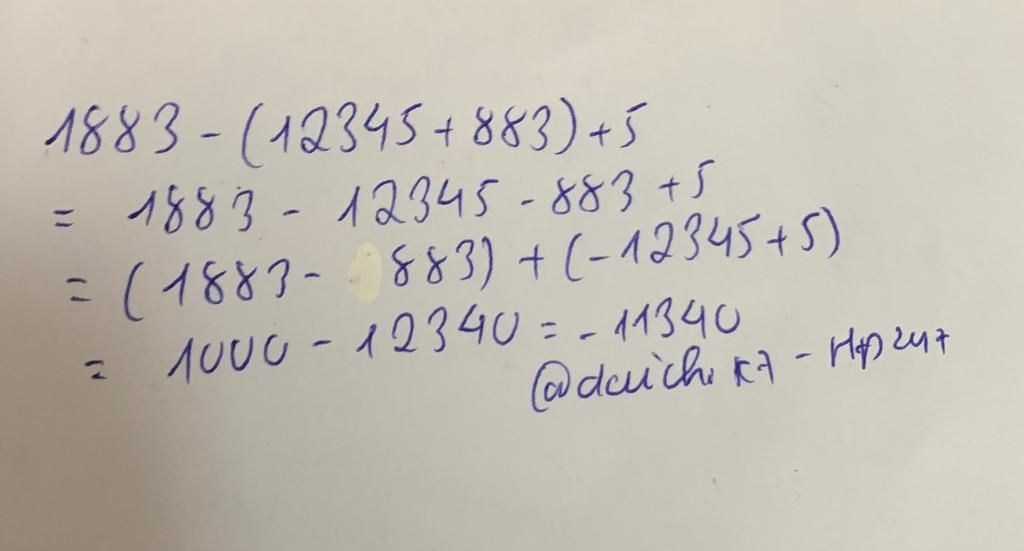 1883 - (12345 + 883) + 5
= 1883 - 12345 - 883 + 5
= (1883 - 883) + (-12345 + 5)
= 1000 - 12340 = -11340